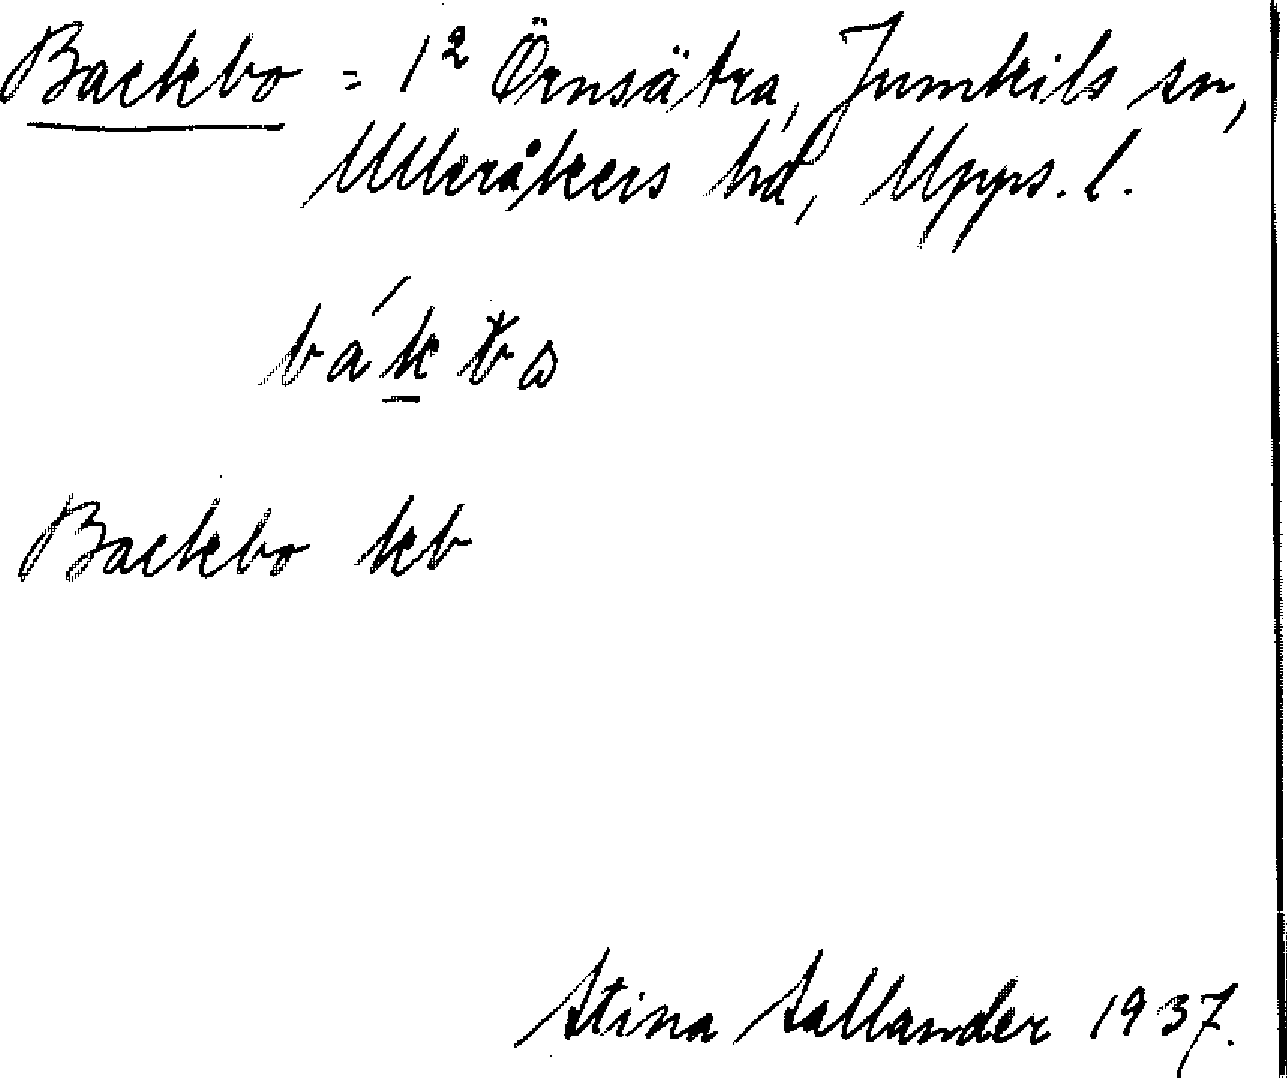 Backbo = 1² Örnsätra, Jumkils sn,
Ulleråkers hd, Upps. l.
Backbo kb
Stina Sallander 1937.